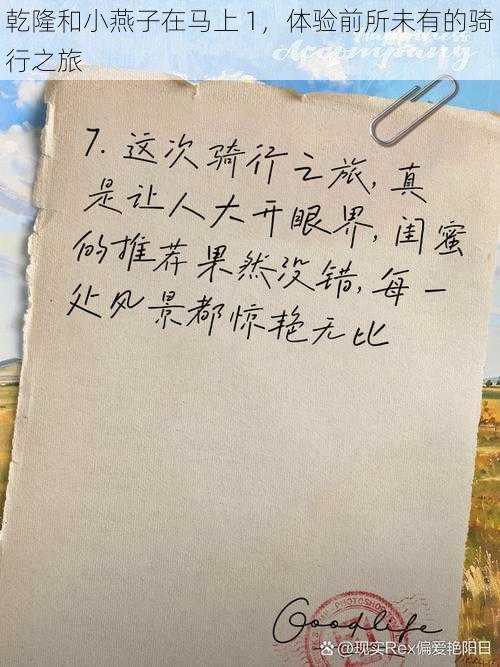 乾隆和小燕子在马上 1，体验前所未有的骑
行之旅
Accompany
7. 这次骑行之旅,真
是让人大开眼界,闺蜜
的推荐果然没错,每一
处风景都惊艳无比
Goodlife
PHOTOSHOP
@现实Rex偏爱艳阳日